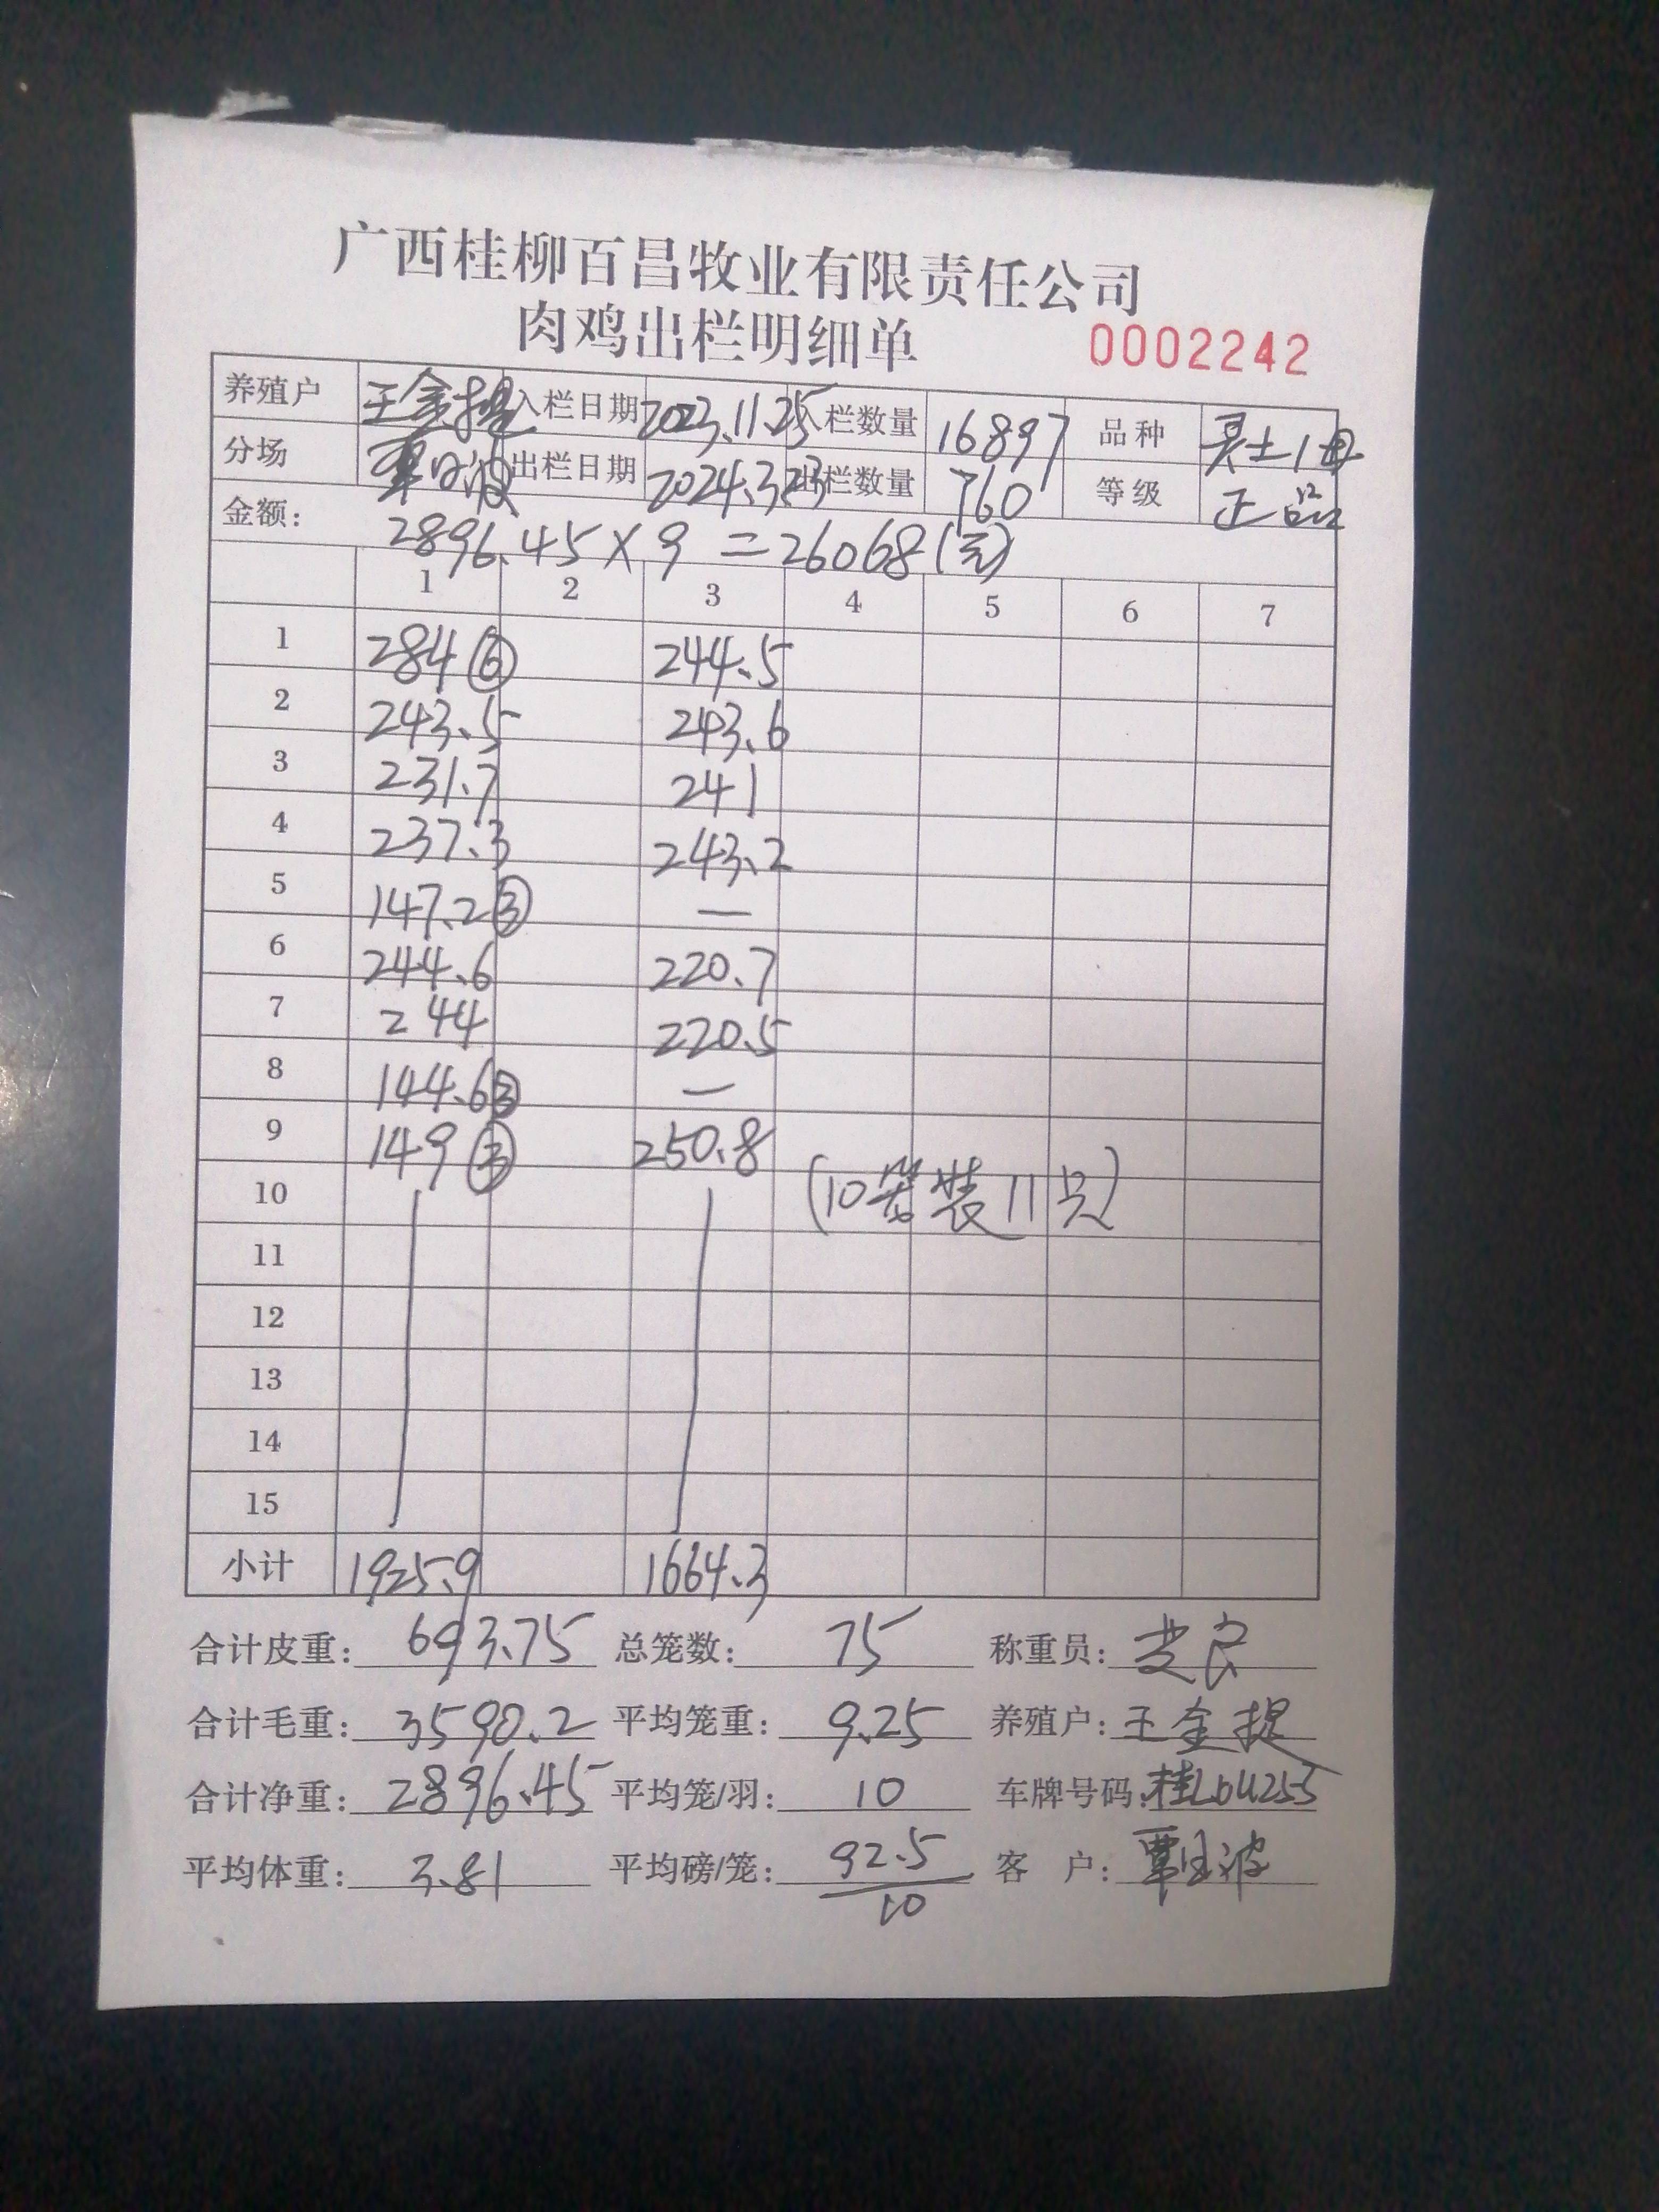 广西桂柳百昌牧业有限责任公司
肉鸡出栏明细单 0002242
养殖户 王金提 入栏日期 2023.11.25 入栏数量 16897 品种
分场 出栏日期 2024.3.23 出栏数量 760 等级 正品
金额: 2896.45×9=26068(元)
1 2 3 4 5 6 7
1 284⑥ 244.5
2 243.5 243.6
3 231.7 241
4 237.3 243.2
5 147.2③ —
6 244.6 220.7
7 244 220.5
8 144.6③ —
9 149③ 250.8
10 (10笼装11只)
11
12
13
14
15
小计 1925.9 1664.3
合计皮重: 693.75 总笼数: 75 称重员:
合计毛重: 3590.2 平均笼重: 9.25 养殖户: 王金提
合计净重: 2896.45 平均笼/羽: 10 车牌号码:
平均体重: 3.81 平均磅/笼: 92.5/10 客 户: